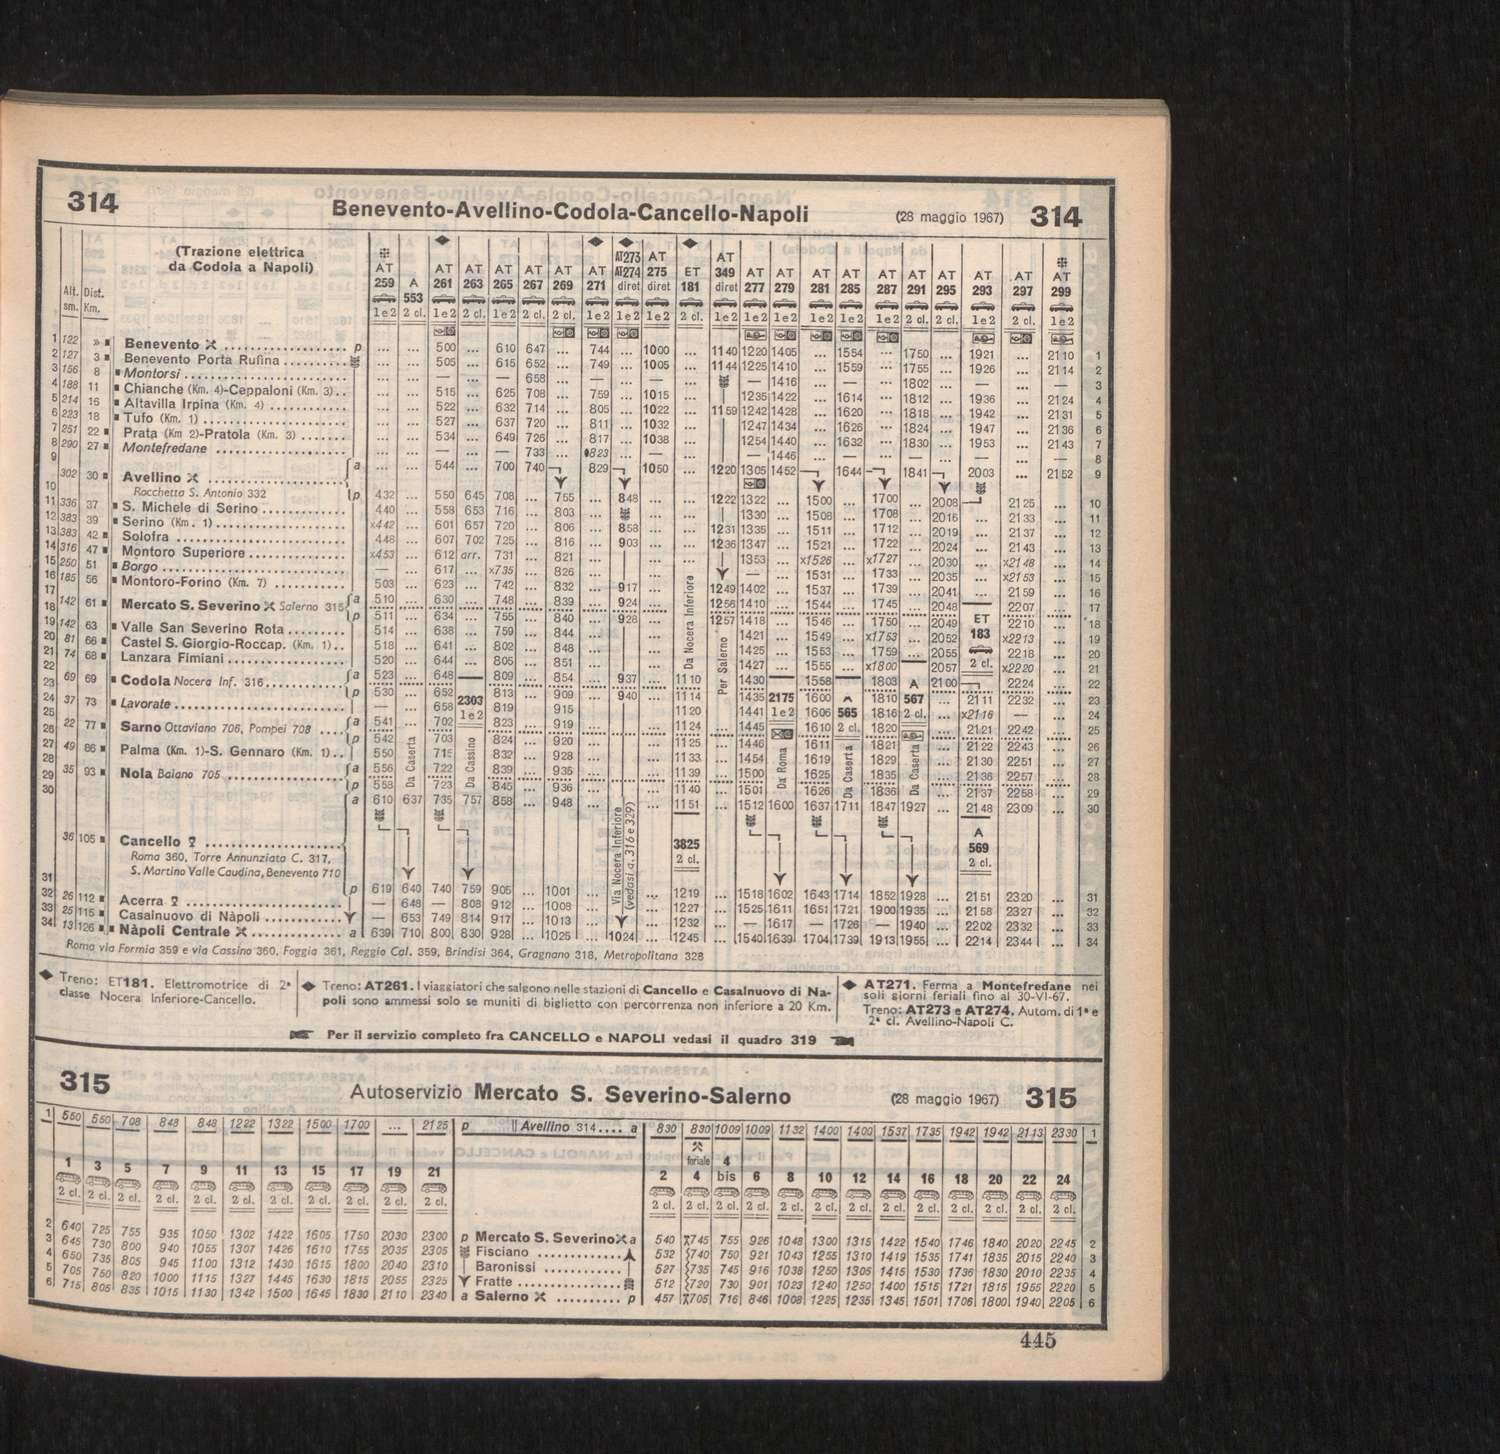 314 Benevento-Avellino-Codola-Cancello-Napoli (28 maggio 1967) 314
(Trazione elettrica
da Codola a Napoli)
Alt. sm. Dist. Km.
AT 259 1e2
A 553 2 cl.
AT 261 1e2
AT 263 2 cl.
AT 265 1e2
AT 267 2 cl.
AT 269 2 cl.
AT 271 1e2
AT273 AT274 diret 1e2
AT 275 diret 1e2
ET 181 2 cl.
AT 349 diret 1e2
AT 277 1e2
AT 279 1e2
AT 281 1e2
AT 285 1e2
AT 287 1e2
AT 291 2 cl.
AT 295 2 cl.
AT 293 1e2
AT 297 2 cl.
AT 299 1e2
1 122 » Benevento p ... ... 500 ... 610 647 ... 744 ... 1000 ... 1140 1220 1405 ... 1554 ... 1750 ... 1921 ... 2110 1
2 127 3 Benevento Porta Rufina ... ... 505 ... 615 652 ... 749 ... 1005 ... 1144 1225 1410 ... 1559 ... 1755 ... 1926 ... 2114 2
3 156 8 Montorsi ... ... — ... — 658 ... — ... — ... — 1416 ... — ... 1802 ... — ... — 3
4 188 11 Chianche (Km. 4)-Ceppaloni (Km. 3) ... ... 515 ... 625 708 ... 759 ... 1015 ... 1235 1422 ... 1614 ... 1812 ... 1936 ... 2124 4
5 214 16 Altavilla Irpina (Km. 4) ... ... 522 ... 632 714 ... 805 ... 1022 ... 1159 1242 1428 ... 1620 ... 1818 ... 1942 ... 2131 5
6 223 18 Tufo (Km. 1) ... ... 527 ... 637 720 ... 811 ... 1032 ... 1247 1434 ... 1626 ... 1824 ... 1947 ... 2136 6
7 251 22 Prata (Km 2)-Pratola (Km. 3) ... ... 534 ... 649 726 ... 817 ... 1038 ... 1254 1440 ... 1632 ... 1830 ... 1953 ... 2143 7
8 290 27 Montefredane ... ... — ... — 733 ... 823 ... — ... — 1446 ... — ... — ... — ... — 8
9 a ... ... 544 ... 700 740 829 1050 ... 1220 1305 1452 1644 1841 2003 ... 2152 9
302 30 Avellino
Rocchetta S. Antonio 332
10 p 432 ... 550 645 708 ... 755 ... 848 ... ... 1222 1322 ... 1500 ... 1700 ... 2008 2125 ... 10
11 336 37 S. Michele di Serino 440 ... 558 653 716 ... 803 ... ... ... 1330 ... 1508 ... 1708 ... 2016 ... 2133 ... 11
12 383 39 Serino (Km. 1) x442 ... 601 657 720 ... 806 ... 858 ... ... 1231 1335 ... 1511 ... 1712 ... 2019 ... 2137 ... 12
13 383 42 Solofra 448 ... 607 702 725 ... 816 ... 903 ... ... 1236 1347 ... 1521 ... 1722 ... 2024 ... 2143 ... 13
14 316 47 Montoro Superiore x453 ... 612 arr. 731 ... 821 ... ... 1353 ... x1526 ... x1727 ... 2030 ... x2148 ... 14
15 250 51 Borgo — ... 617 ... x735 ... 826 ... ... — ... 1531 ... 1733 ... 2035 ... x2153 ... 15
16 185 56 Montoro-Forino (Km. 7) 503 ... 623 ... 742 ... 832 ... 917 ... 1249 1402 ... 1537 ... 1739 ... 2041 ... 2159 ... 16
17 a 510 ... 630 ... 748 ... 839 ... 924 ... 1256 1410 ... 1544 ... 1745 ... 2048 2207 ... 17
142 61 Mercato S. Severino Salerno 315
18 p 511 ... 634 ... 755 ... 840 ... 928 ... 1257 1418 ... 1546 ... 1750 ... 2049 ET 2210 ... 18
19 142 63 Valle San Severino Rota 514 ... 638 ... 759 ... 844 ... ... 1421 ... 1549 ... x1753 ... 2052 183 x2213 ... 19
20 81 66 Castel S. Giorgio-Roccap. (Km. 1) 518 ... 641 ... 802 ... 848 ... ... 1425 ... 1553 ... 1759 ... 2055 2218 ... 20
21 74 68 Lanzara Fimiani 520 ... 644 ... 805 ... 851 ... ... 1427 ... 1555 ... x1800 2057 2 cl. x2220 ... 21
22 a 523 ... 648 809 ... 854 ... 937 ... 1110 1430 1558 1803 A 2100 2224 ... 22
69 69 Codola Nocera Inf. 316
23 p 530 ... 652 2303 813 ... 909 ... 940 ... 1114 1435 2175 1600 A 1810 567 ... 2111 2232 ... 23
24 37 73 Lavorate — ... 658 1e2 819 ... 915 ... ... 1120 1441 1e2 1606 565 1816 2 cl. ... x2116 — ... 24
25 a 541 ... 702 823 ... 919 ... ... 1124 1445 1610 2 cl. 1820 ... 2121 2242 ... 25
22 77 Sarno Ottaviano 706, Pompei 708
26 p 542 703 824 ... 920 ... ... 1125 1446 1611 1821 ... 2122 2243 ... 26
27 49 86 Palma (Km. 1)-S. Gennaro (Km. 1) 550 715 832 ... 928 ... ... 1133 1454 1619 1829 ... 2130 2251 ... 27
28 a 556 722 839 ... 935 ... ... 1139 1500 1625 1835 ... 2136 2257 ... 28
35 93 Nola Baiano 705
29 p 558 723 845 ... 936 ... ... 1140 1501 1626 1836 ... 2137 2258 ... 29
30 a 610 637 735 757 858 ... 948 ... ... 1151 1512 1600 1637 1711 1847 1927 ... 2148 2309 ... 30
Da Caserta
Da Cassino
Via Nocera Inferiore
(vedasi q. 316 e 329)
Da Nocera Inferiore
Per Salerno
Da Roma
Da Caserta
Da Caserta
36 105 Cancello
Roma 360, Torre Annunziata C. 317,
S. Martino Valle Caudina, Benevento 710
3825 2 cl.
A 569 2 cl.
31 p 619 640 740 759 905 ... 1001 ... ... 1219 ... 1518 1602 1643 1714 1852 1928 ... 2151 2320 ... 31
32 26 112 Acerra — 648 — 808 912 ... 1008 ... ... 1227 ... 1525 1611 1651 1721 1900 1935 ... 2158 2327 ... 32
33 25 115 Casalnuovo di Nàpoli — 653 749 814 917 ... 1013 ... ... 1232 ... — 1617 — 1726 — 1940 ... 2202 2332 ... 33
34 13 126 Nàpoli Centrale a 639 710 800 830 928 ... 1025 ... 1024 ... 1245 ... 1540 1639 1704 1739 1913 1955 ... 2214 2344 ... 34
Roma via Formia 359 e via Cassino 360, Foggia 361, Reggio Cal. 359, Brindisi 364, Gragnano 318, Metropolitana 328
Treno: ET181. Elettromotrice di 2ª
classe Nocera Inferiore-Cancello.
Treno: AT261. I viaggiatori che salgono nelle stazioni di Cancello e Casalnuovo di Na-
poli sono ammessi solo se muniti di biglietto con percorrenza non inferiore a 20 Km.
AT271. Ferma a Montefredane nei
soli giorni feriali fino al 30-VI-67.
Treno: AT273 e AT274. Autom. di 1ª e
2ª cl. Avellino-Napoli C.
Per il servizio completo fra CANCELLO e NAPOLI vedasi il quadro 319
315 Autoservizio Mercato S. Severino-Salerno (28 maggio 1967) 315
1 550 550 708 848 848 1222 1322 1500 1700 ... 2125 p Avellino 314 .... a 830 830 1009 1009 1132 1400 1400 1537 1735 1942 1942 2113 2330 1
feriale
1 3 5 7 9 11 13 15 17 19 21 2 4 4 bis 6 8 10 12 14 16 18 20 22 24
2 cl. 2 cl. 2 cl. 2 cl. 2 cl. 2 cl. 2 cl. 2 cl. 2 cl. 2 cl. 2 cl. 2 cl. 2 cl. 2 cl. 2 cl. 2 cl. 2 cl. 2 cl. 2 cl. 2 cl. 2 cl. 2 cl. 2 cl. 2 cl.
2 640 725 755 935 1050 1302 1422 1605 1750 2030 2300 p Mercato S. Severino a 540 745 755 926 1048 1300 1315 1422 1540 1746 1840 2020 2245 2
3 645 730 800 940 1055 1307 1426 1610 1755 2035 2305 Fisciano 532 740 750 921 1043 1255 1310 1419 1535 1741 1835 2015 2240 3
4 650 735 805 945 1100 1312 1430 1615 1800 2040 2310 Baronissi 527 735 745 916 1038 1250 1305 1415 1530 1736 1830 2010 2235 4
5 705 750 820 1000 1115 1327 1445 1630 1815 2055 2325 Fratte 512 720 730 901 1023 1240 1250 1400 1515 1721 1815 1955 2220 5
6 715 805 835 1015 1130 1342 1500 1645 1830 2110 2340 a Salerno p 457 705 716 846 1008 1225 1235 1345 1501 1706 1800 1940 2205 6
445